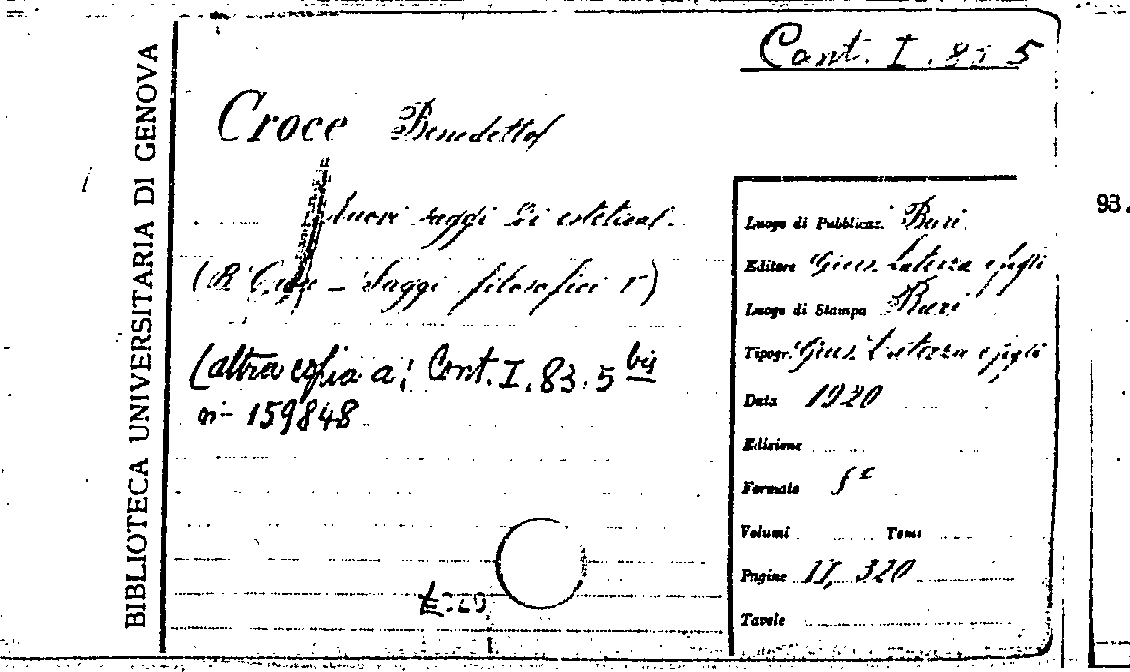 Cont. I. 83. 5
BIBLIOTECA UNIVERSITARIA DI GENOVA
Croce Benedetto
Nuovi saggi di estetica.
(B. Croce - Saggi filosofici V)
(altra copia a: Cont. I. 83. 5 bis
n° 159848
Luogo di Pubblicaz. Bari
Editore Gius. Laterza e figli
Luogo di Stampa Bari
Tipogr. Gius. Laterza e figli
Data 1920
Edizione
Formato 8°
Volumi Tomi
Pagine II, 320
Tavole
93.